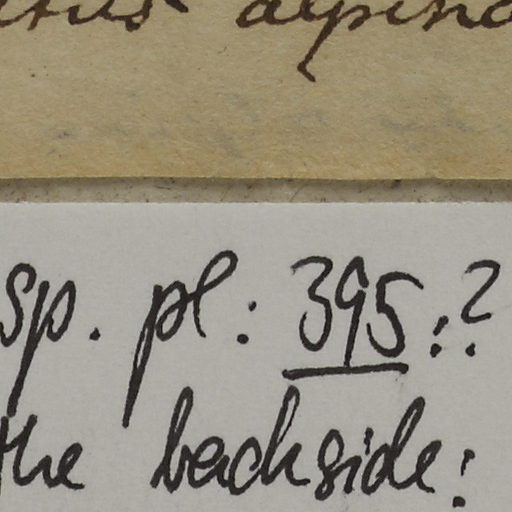 alpin
sp. pl: 395:?
the backside: